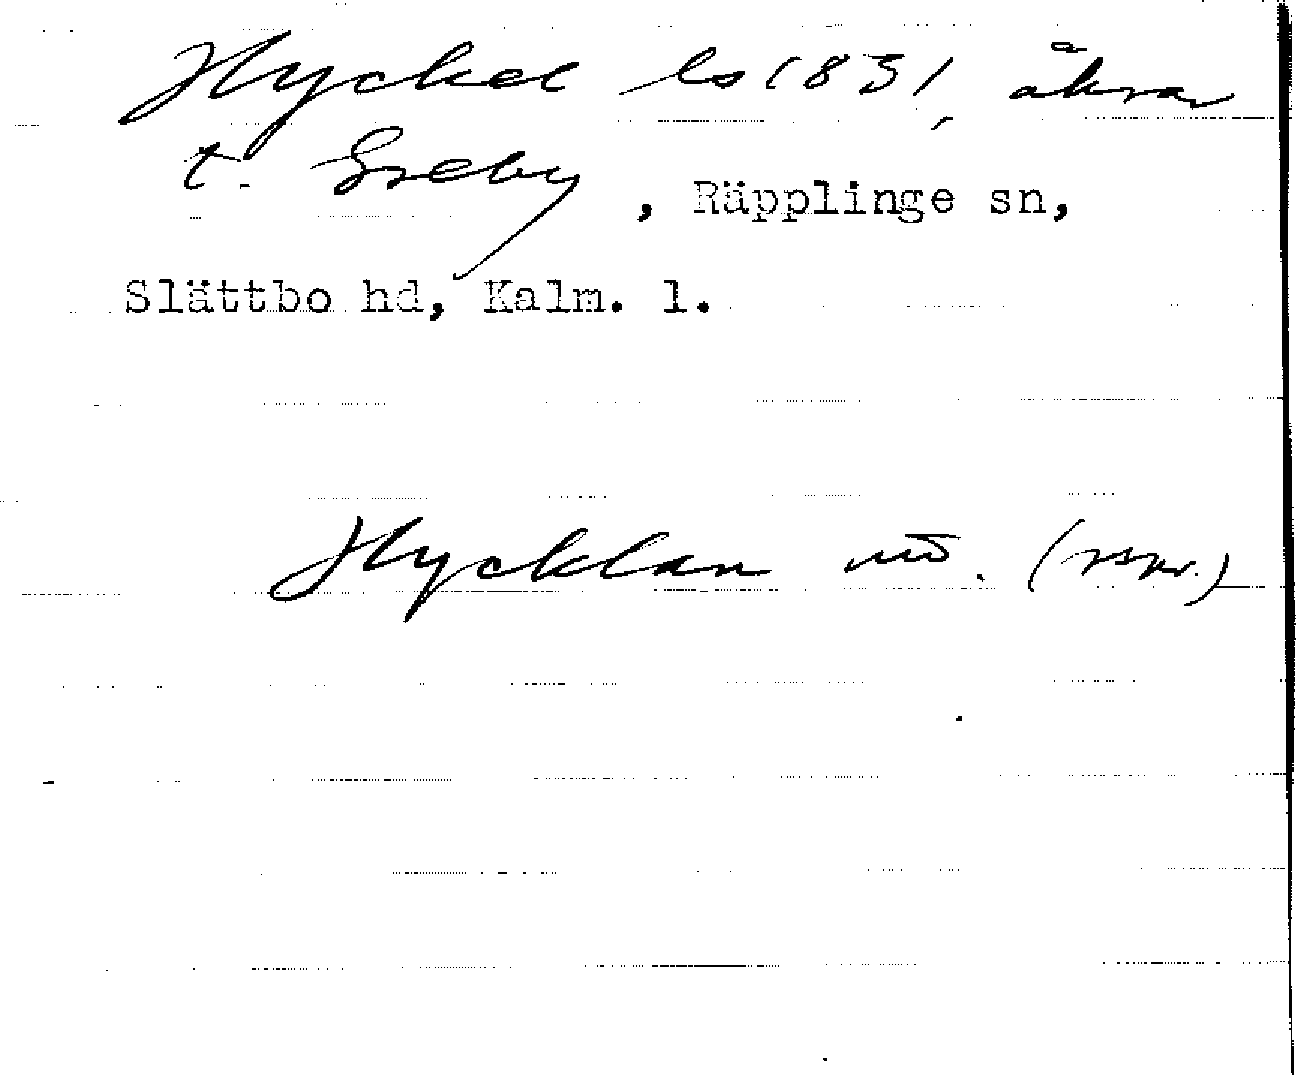 Hyckel ls 1831, åkrar
t. Greby, Räpplinge sn,
Slättbo hd, Kalm. l.
Hycklan